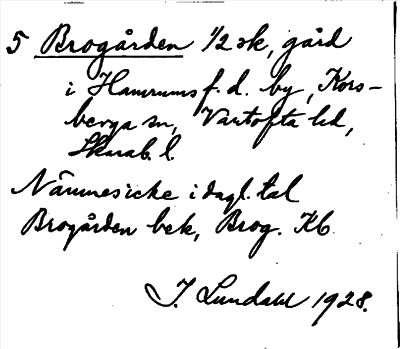 5 Brogården 1/2 sk, gård
i Hamrums f. d. by, Kors-
berga sn, Vartofta hd,
Skarab. l.
Nämnes icke i dagl. tal
Brogården bek, Brog. Kb.
I. Lundahl 1928.